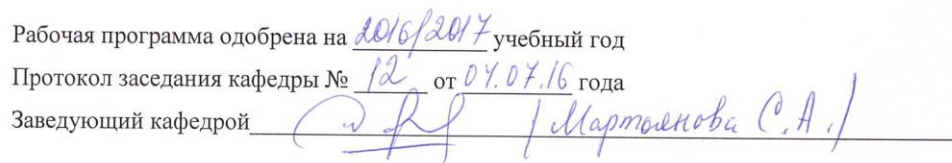 Рабочая программа одобрена на 2016/2017 учебный год
Протокол заседания кафедры № 12 от 04.07.16 года
Заведующий кафедрой / Мартоянова С.А./